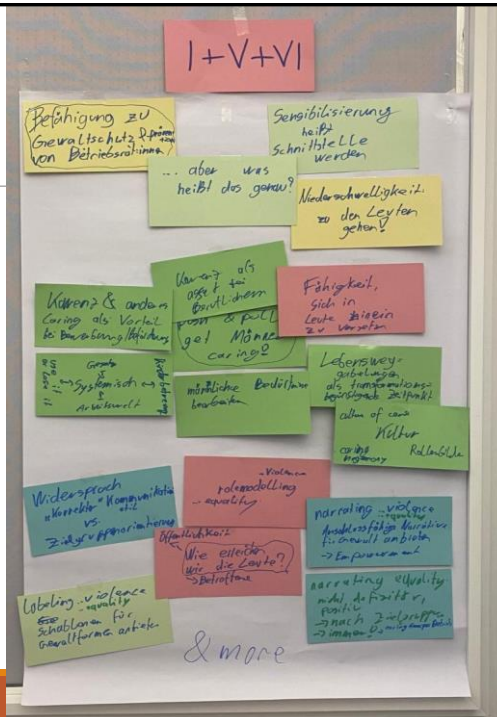 I+V+VI
Befähigung zu
Gewaltschutz &
von Betriebsrät:innen
Sensibilisierung
heißt
Schnittstelle
werden
... aber was
heißt das genau?
Niederschwelligkeit.
zu den Leuten
gehen!
Karenz als
asset bei
push & pull
get Männer
caring?
Karenz & andere
Caring als Vorteil
bei Bewerbung/
Fähigkeit,
sich in
Leute hinein
zu versetzen
use it
or lose it
Gesetz
&
→ Systemisch ↔
&
Arbeitswelt
Kinderbetreuung
männliche Bedürfnisse
bearbeiten
Lebensweg-
gabelungen
als transformations-
begünstigende Zeitpunkt
culture of care
Kultur
caring
hegemony
Rollenbilder
Widerspruch
"Korrekte" Kommunikation
vs.
Zielgruppenorientierung
- Violence
rolemodelling
- equality
narrating : violence
Anschlussfähige Narrative
für Gewalt anbieten
→ Empowerment
Öffentlichkeit
Wie erreichen
wir die Leute?
→ Betroffene
Labeling : violence
equality
Schablonen für
Gewaltformen anbieten
narrating equality
nicht defizitär,
positiv
→ nach Zielgruppen
→ immer
& more